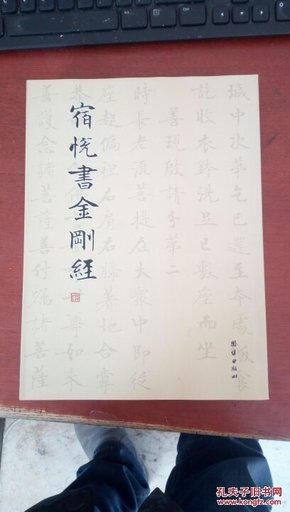 宿悦書金剛經
城中次第乞已還至本處飯食
訖收衣鉢洗足已敷座而坐
善現啟請分第二
時長老須菩提在大衆中即從
座起偏袒右肩右膝著地合掌
恭
善護念諸菩薩善付囑諸菩薩
團結出版社
孔夫子旧书网